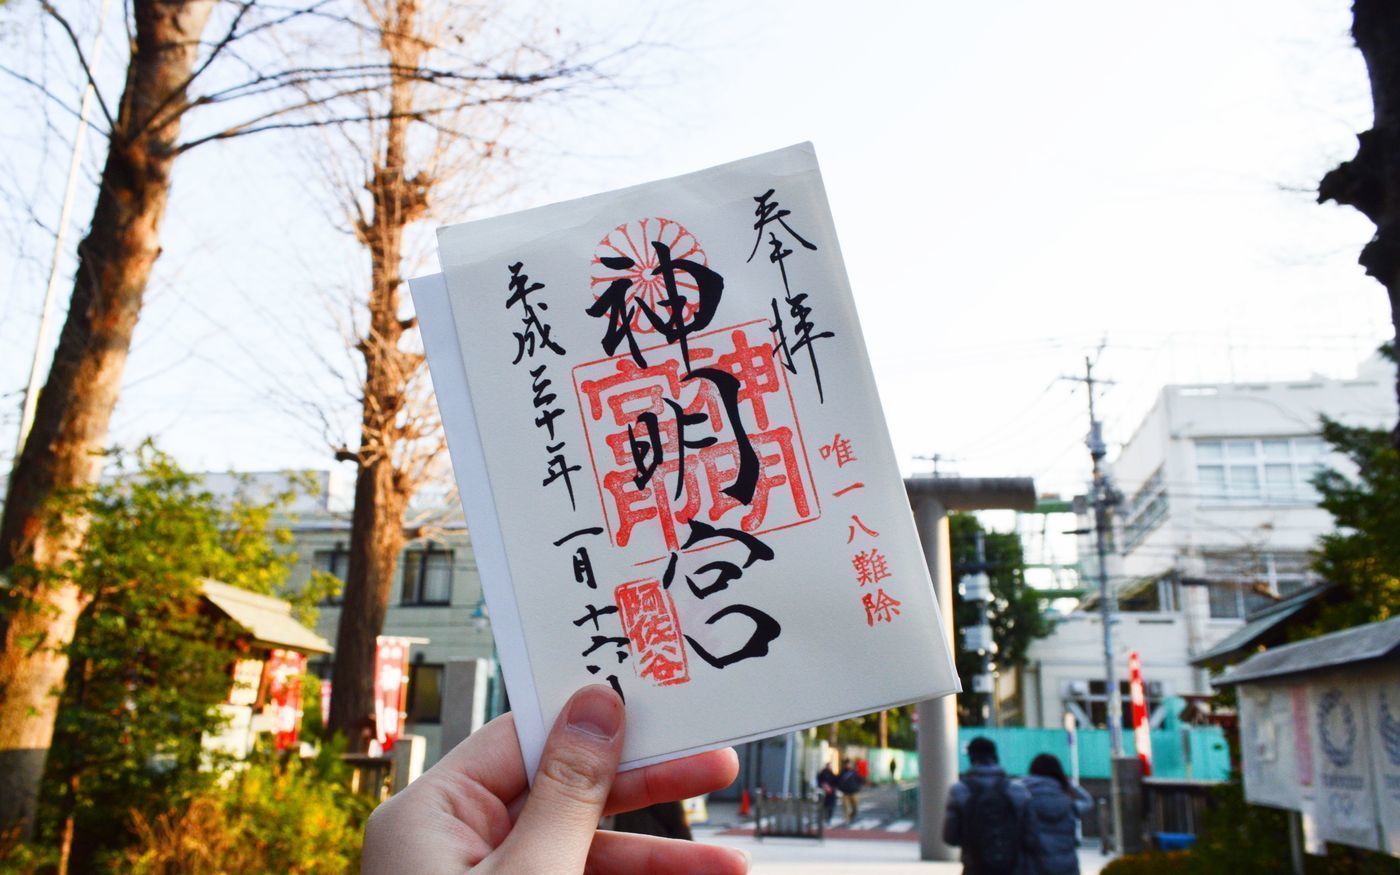 奉拝
唯一八難除
神明宮
神明宮印
阿佐谷
平成三十年一月十六日